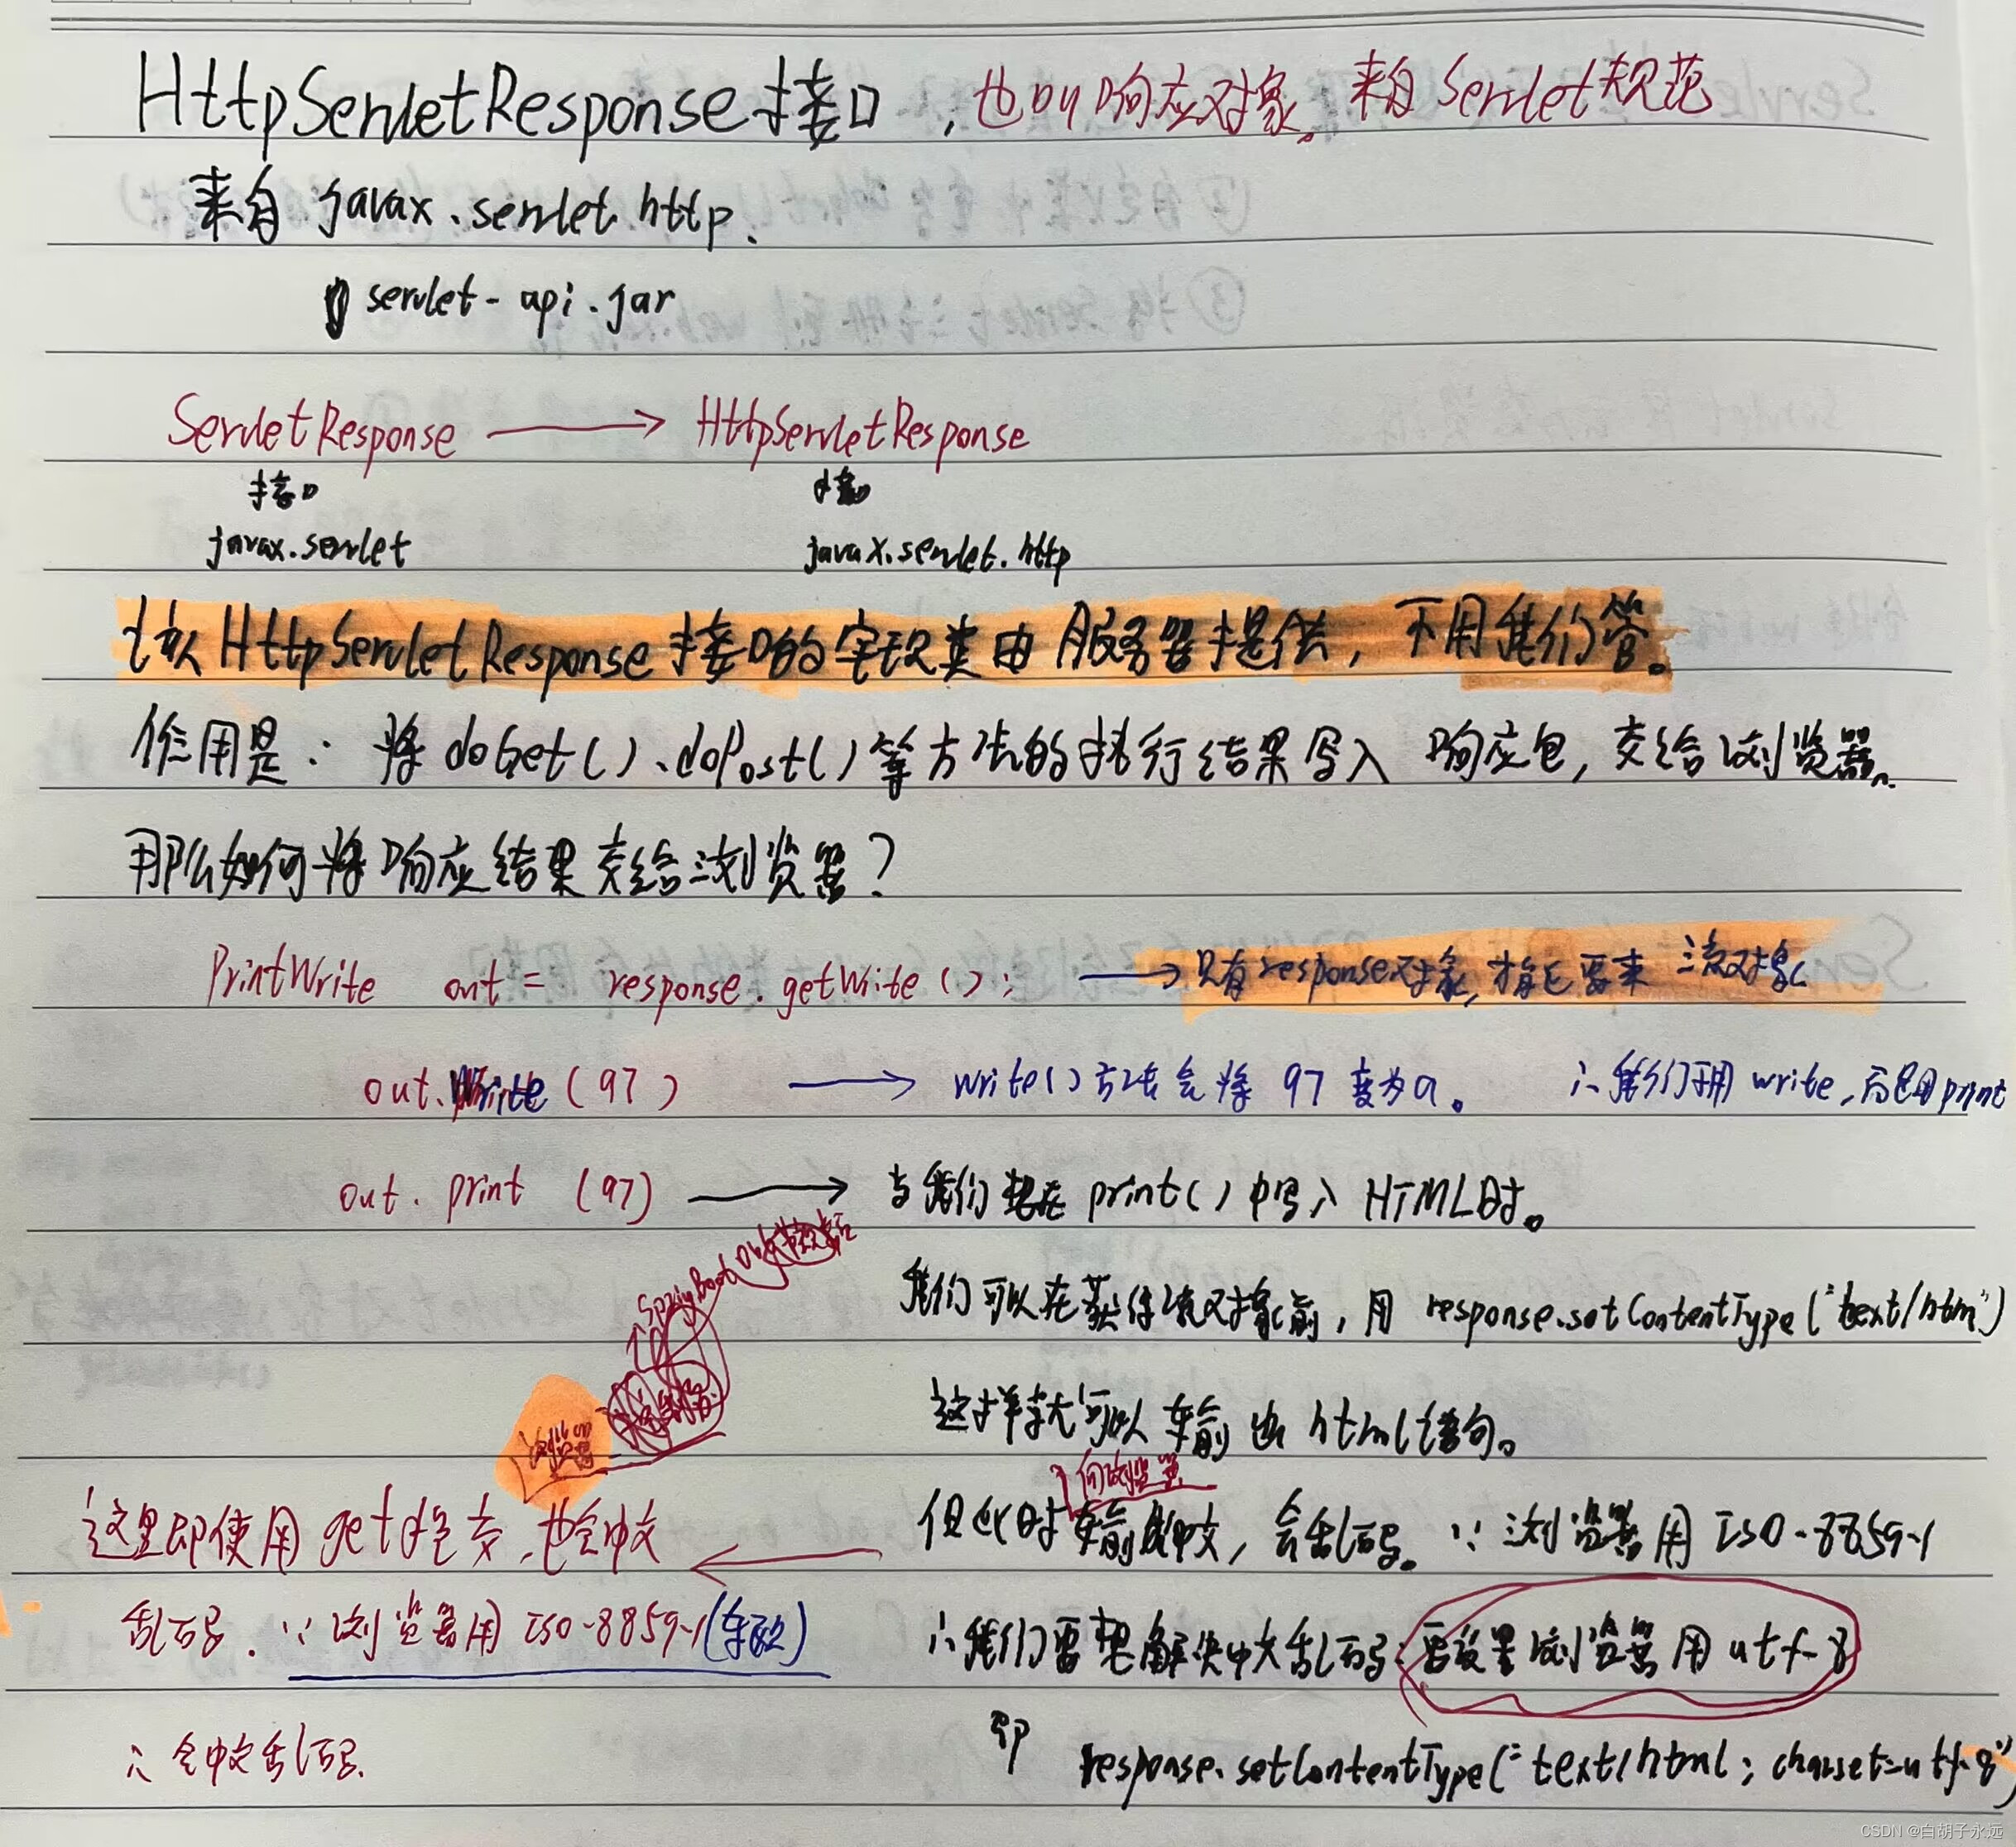 HttpServletResponse接口，也叫响应对象。来自Servlet规范
来自 javax.servlet.http.
servlet-api.jar
ServletResponse → HttpServletResponse
接口 接口
javax.servlet javax.servlet.http
该HttpServletResponse接口的实现类由服务器提供，不用我们管。
作用是：将doGet()、doPost()等方法的执行结果写入 响应包，交给浏览器。
那么如何将响应结果交给浏览器？
PrintWrite out = response.getWrite(); → 只有response对象，才能要来 流对象
out.Write(97) → write()方法会将 97 变为a。 ∴我们不用write，而是用print
out.print (97) → 当我们想在print()中写入HTML时。
我们可以在获得流对象前，用 response.setContentType("text/htm")
这样就可以输出html语句。
浏览器
向浏览器
但此时输出中文，会乱码。∵浏览器用ISO-8859-1
这里即使用get提交，也会中文
乱码。∵浏览器用ISO-8859-1(车欧)
∴我们要想解决中文乱码：要设置浏览器用utf-8
∴会中文乱码
即 response.setContentType("text/html; charset=utf-8")
CSDN @白胡子永远